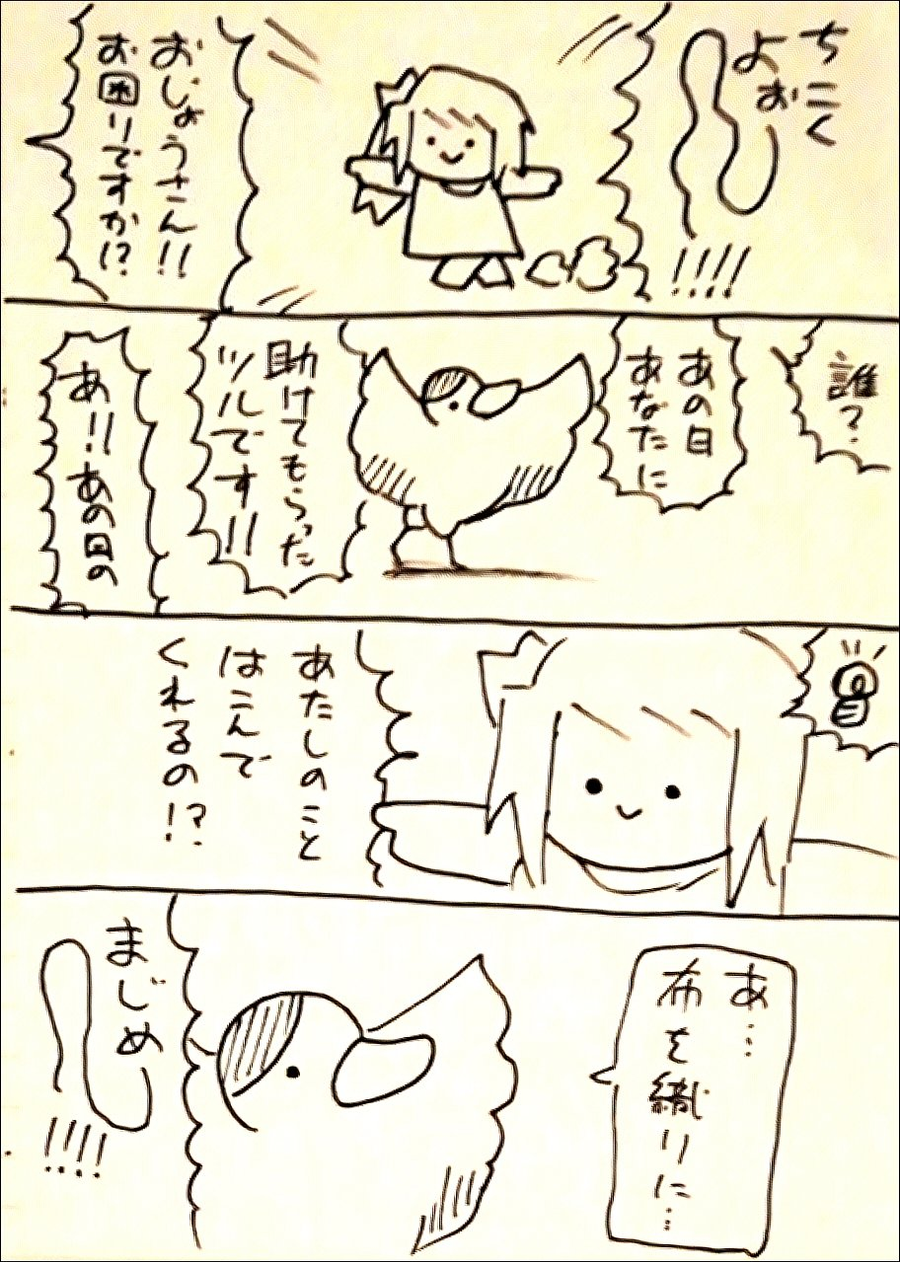 ちこく
よぉ〜
!!!!
おじょうさん!!
お困りですか!?
誰?
あの日
あなたに
助けてもらった
ツルです!!
あ!!あの日の
あたしのこと
はこんで
くれるの!?
あ…
布を織りに…
まじめ〜
!!!!